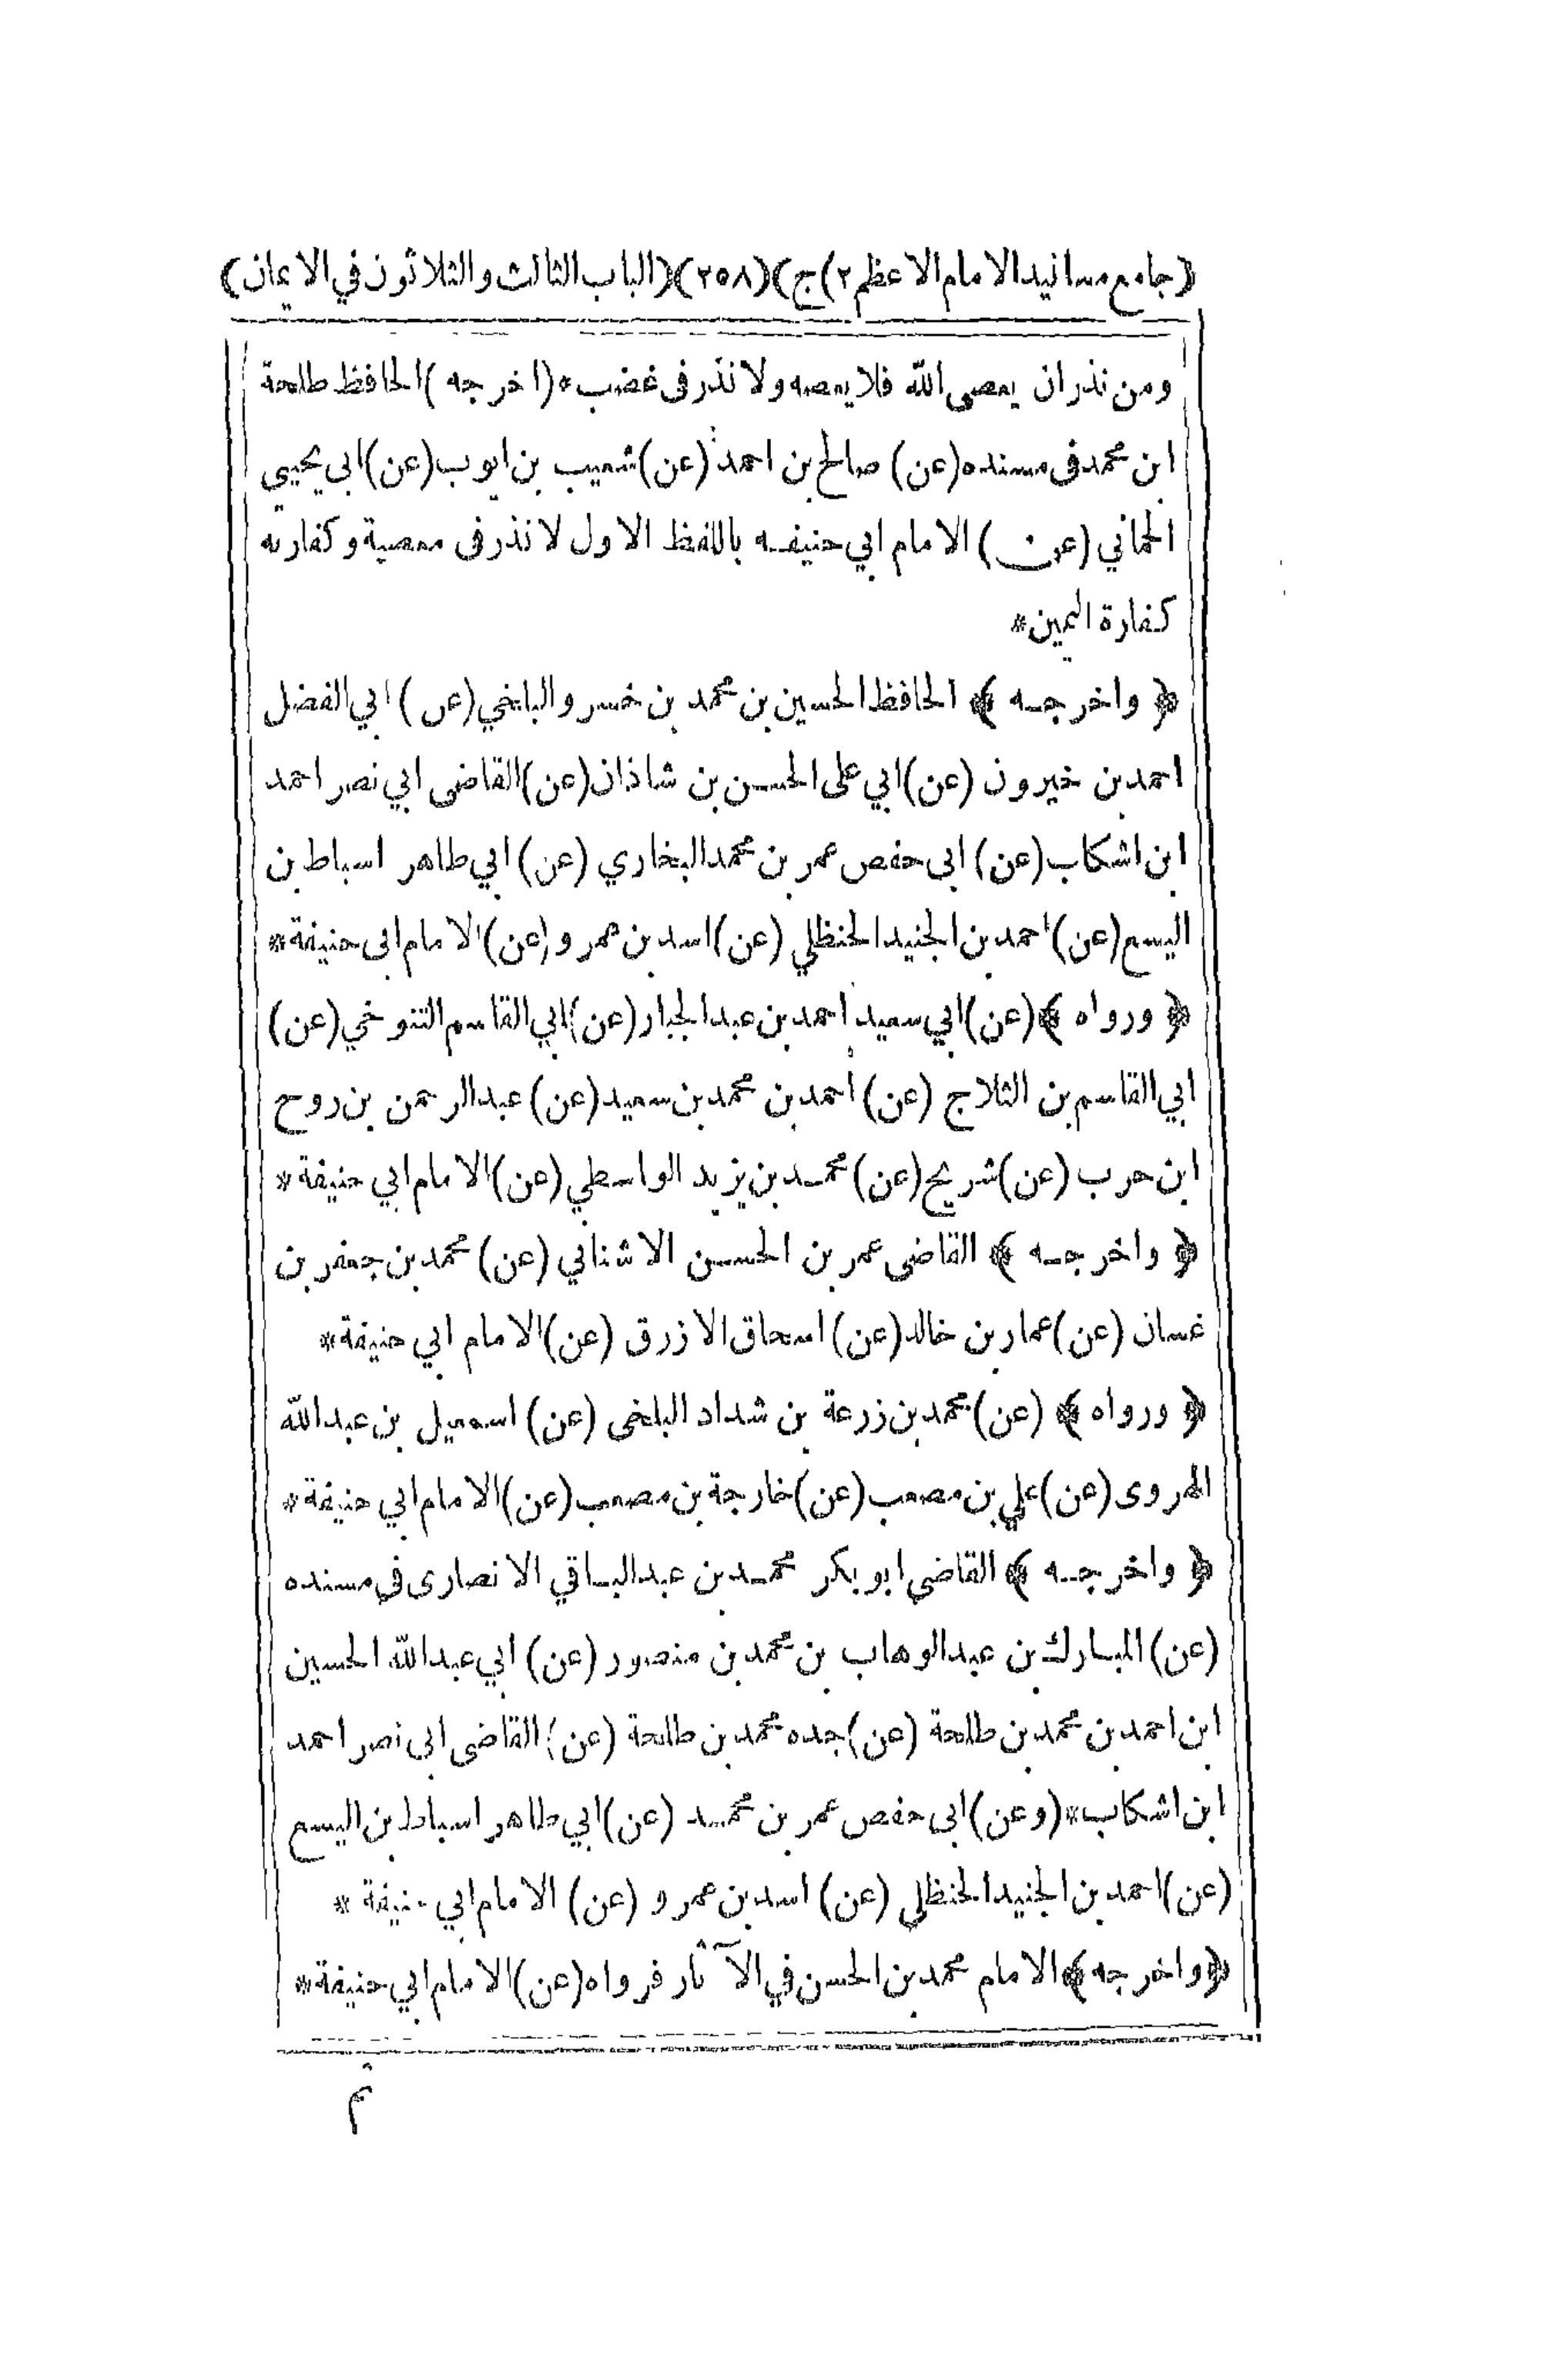 (جامع مسانيد الامام الاعظم ٢) ج) (٢٥٨) (الباب الثالث والثلاثون في الايمان)
ومن نذر ان يعصى الله فلا يعصه ولا نذر فى غضب * (اخرجه) الحافظ طلحة
ابن محمد فى مسنده (عن) صالح بن احمد (عن) شعيب بن ايوب (عن) ابي يحيي
الحماني (عن) الامام ابي حنيفه باللفظ الاول لا نذر فى معصية وكفارته
كفارة اليمين *
﴿ واخرجه ﴾ الحافظ الحسين بن محمد بن خسرو البلخي (عن) ابي الفضل
احمد بن خيرون (عن) ابي على الحسن بن شاذان (عن) القاضى ابي نصر احمد
ابن اشكاب (عن) ابى حفص عمر بن محمد البخاري (عن) ابي طاهر اسباط بن
اليسع (عن) احمد بن الجنيد الحنظلي (عن) اسد بن عمرو (عن) الامام ابى حنيفة *
﴿ ورواه ﴾ (عن) ابي سعيد احمد بن عبد الجبار (عن) ابي القاسم التنوخي (عن)
ابي القاسم بن الثلاج (عن) احمد بن محمد بن سعيد (عن) عبد الرحمن بن روح
ابن حرب (عن) شريح (عن) محمد بن يزيد الواسطي (عن) الامام ابي حنيفة *
﴿ واخرجه ﴾ القاضى عمر بن الحسن الاشناني (عن) محمد بن جعفر بن
غسان (عن) عمار بن خالد (عن) اسحاق الازرق (عن) الامام ابي حنيفة *
﴿ ورواه ﴾ (عن) محمد بن زرعة بن شداد البلخى (عن) اسمعيل بن عبد الله
الهروى (عن) علي بن مصعب (عن) خارجة بن مصعب (عن) الامام ابي حنيفة *
﴿ واخرجه ﴾ القاضى ابو بكر محمد بن عبد الباقي الانصارى في مسنده
(عن) المبارك بن عبد الوهاب بن محمد بن منصور (عن) ابي عبد الله الحسين
ابن احمد بن محمد بن طلحة (عن) جده محمد بن طلحة (عن) القاضى ابى نصر احمد
ابن اشكاب * (وعن) ابى حفص عمر بن محمد (عن) ابي طاهر اسباط بن اليسع
(عن) احمد بن الجنيد الحنظلي (عن) اسد بن عمرو (عن) الامام ابي حنيفة *
﴿ واخرجه ﴾ الامام محمد بن الحسن في الآثار فرواه (عن) الامام ابي حنيفة *